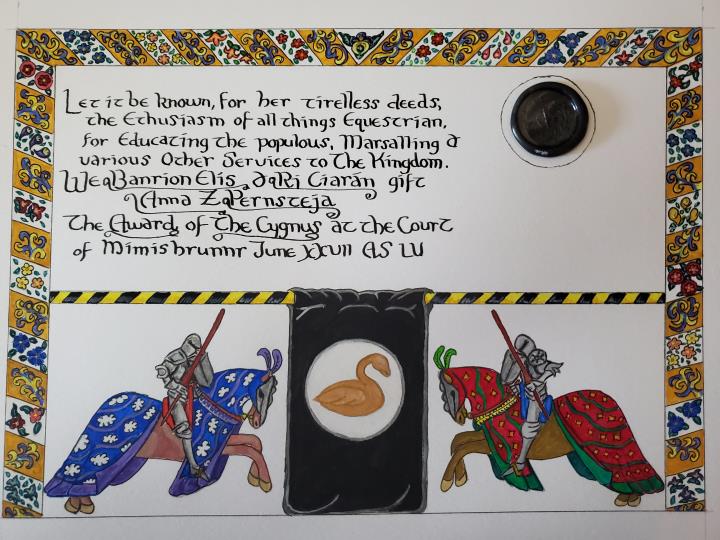 Let it be known, for her tireless deeds,
the Ethusiasm of all things Equestrian,
for Educating the populous, Marsalling &
various Other Services to The Kingdom.
We Banrion Elis & Ri Ciarán gift
Anna Z Pernsteja
The Award of The Cygnus at the Court
of Mimisbrunnr June XXVII AS LV